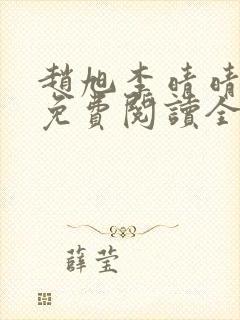 趙旭李晴晴
免費閱讀全
薛莹